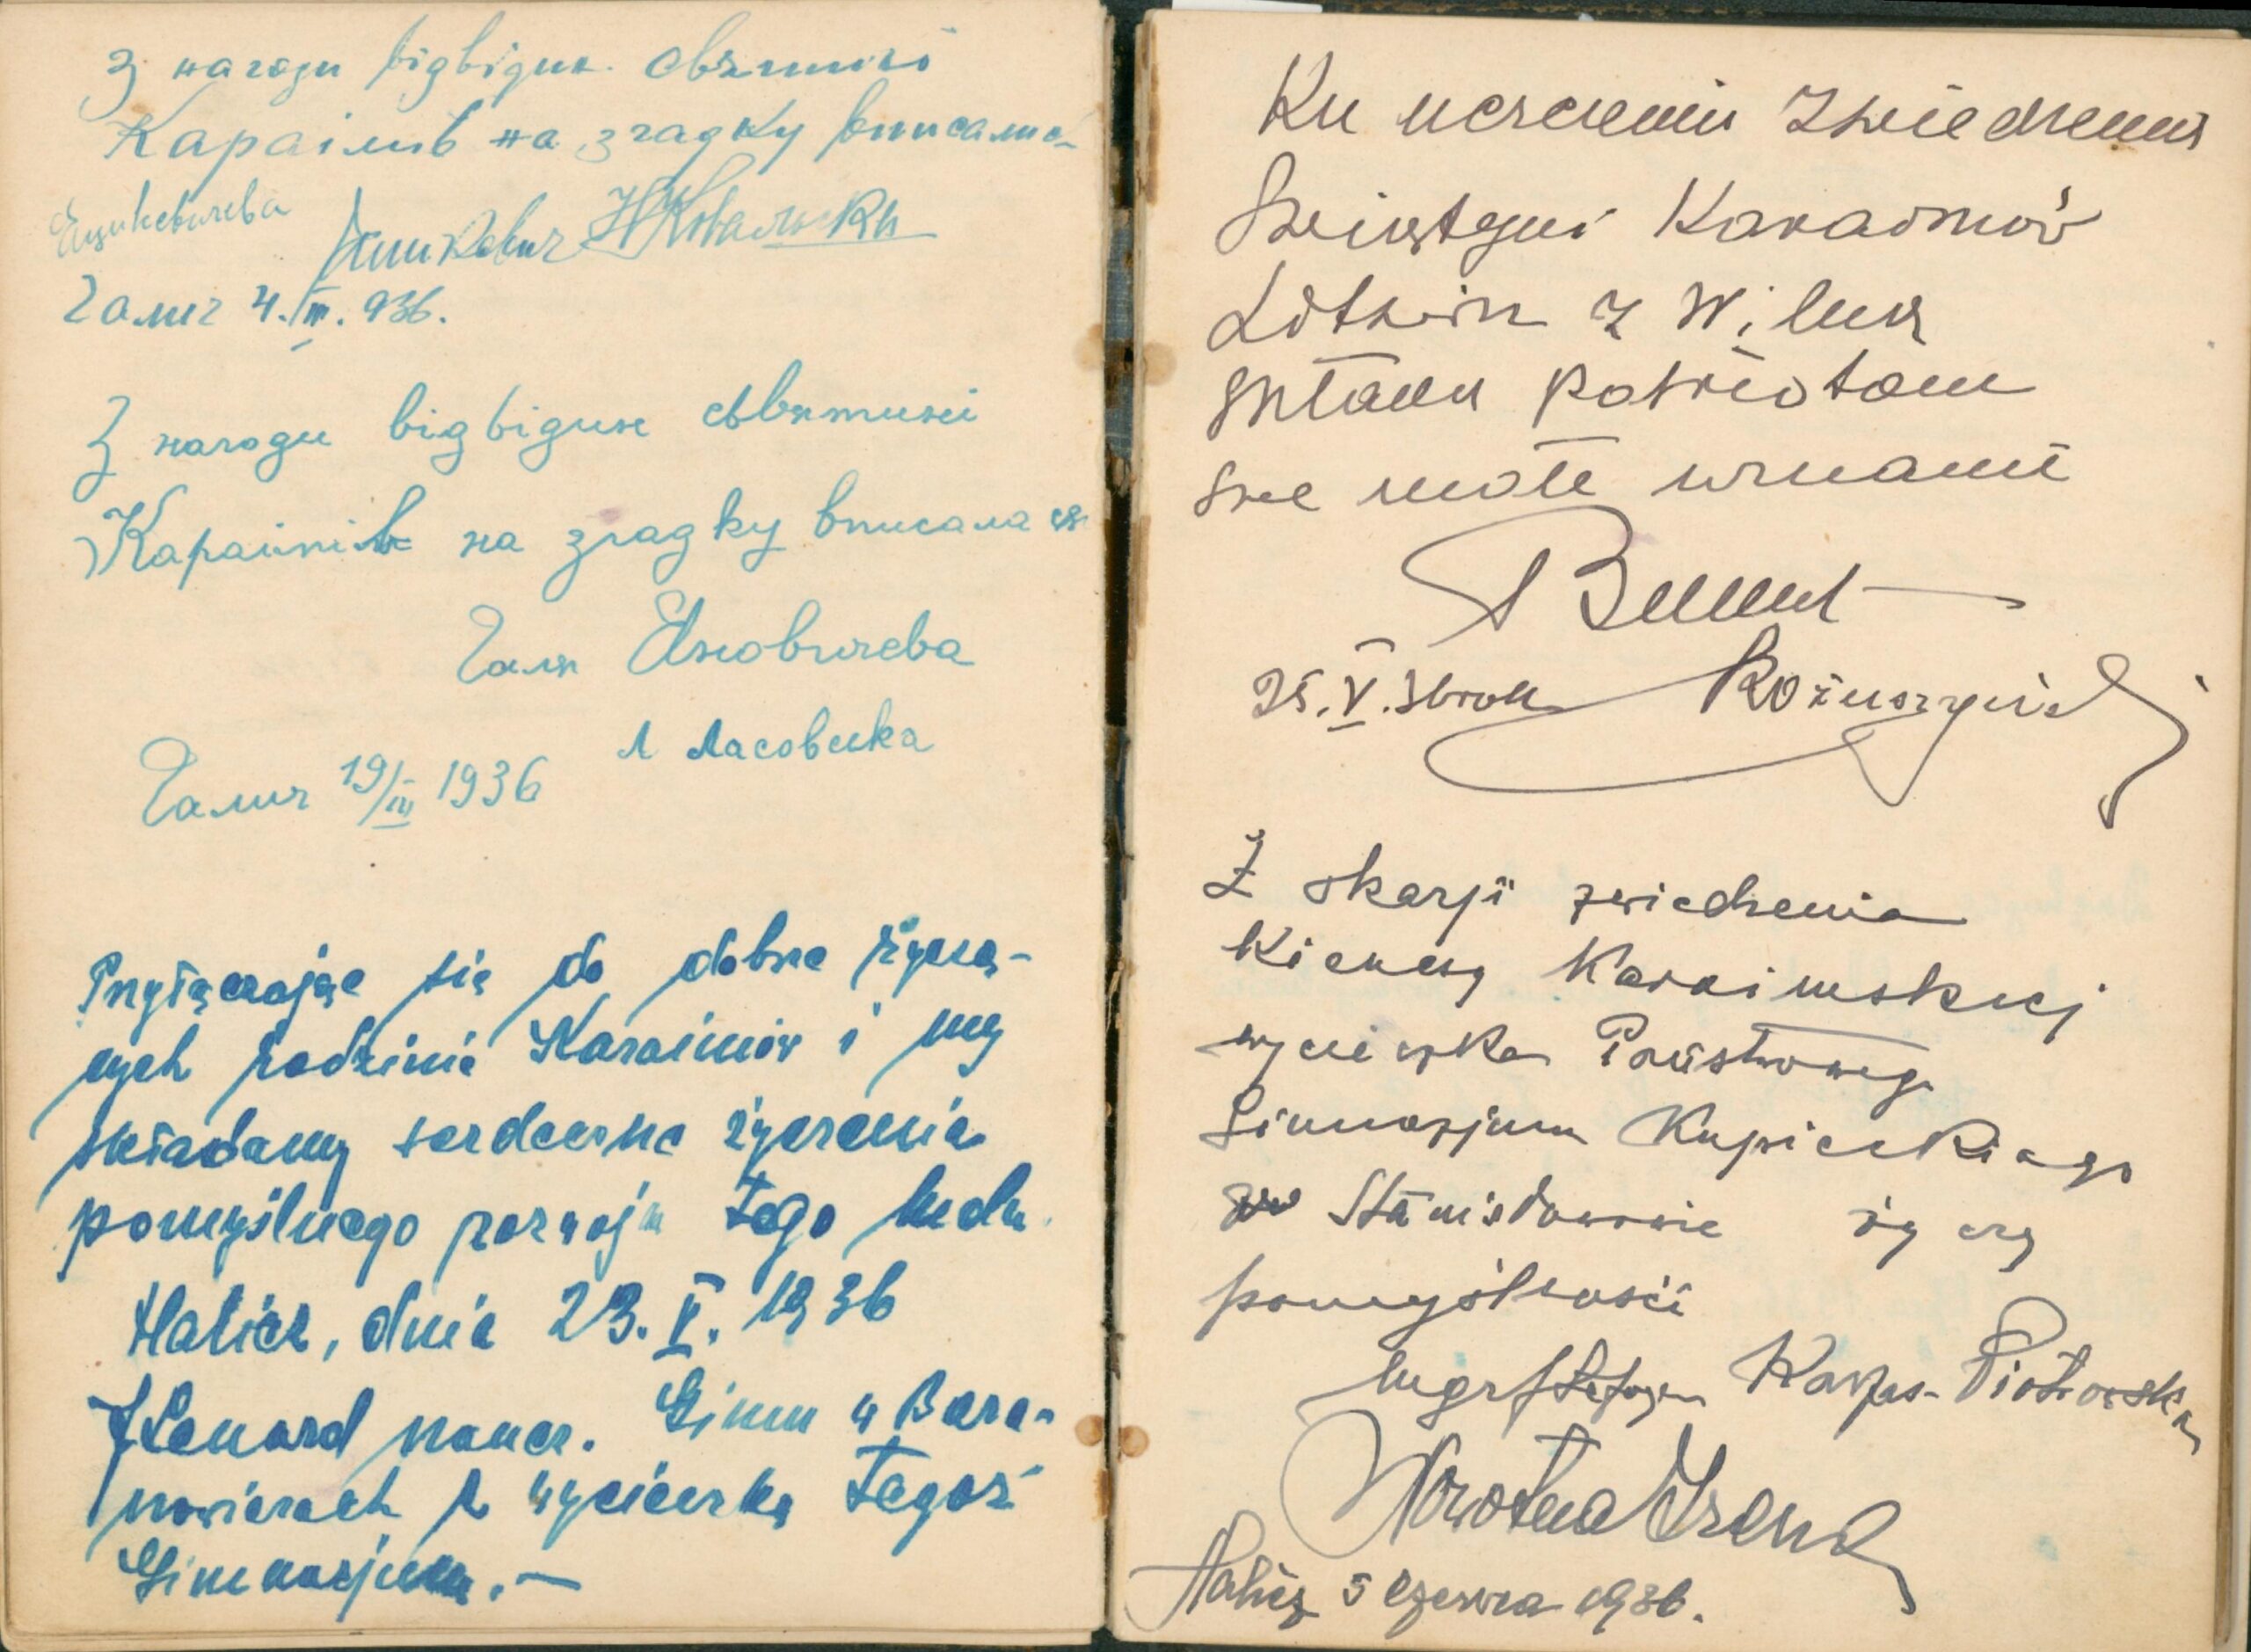 З нагоди відвідин святині
Караімів на згадку вписались
Яцикевичева
Н Ковальські
Галич 4.III.936.
З нагоди відвідин святині
Караімів на згадку вписалася
Галя Яновичева
Л Ласовська
Галич 19/III 1936
Przyłączając się do dobrze życzą-
cych rodzinie Karaimów i my
składamy serdeczne życzenia
pomyślnego rozwoju tego ludu.
Halicz, dnia 23.V.1936
Lenard naucz. Gimn w Bara-
nowiczach z wycieczką tegoż
Gimnazjum.—
Ku uczczeniu zwiedzenia
Świątyni Karaimów
Lotnik z Wilna
składa patriotom
swe uznanie
25.V.36 rok
Z okazji zwiedzenia
Kienesy Karaimskiej
wycieczka Państwowego
Gimnazjum Kupieckiego
w Stanisławowie życzy
pomyślności
mgr Stefanja Karpas-Piotrowska
Nowotna Irena
Halicz 5 czerwca 1936.